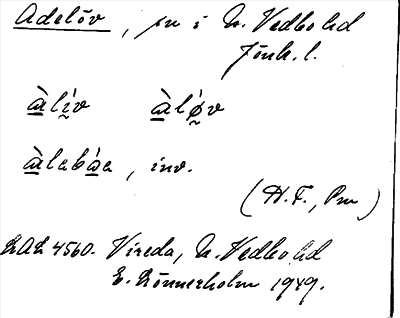 Adelöv, sn i N. Vedbo hd
Jönk. l.
àlḭ́v àlǿ̰v
àlabàa, inv.
(H.F., Pm)
LAL 4560. Vireda, N. Vedbo hd
E. Lönnerholm 1949.